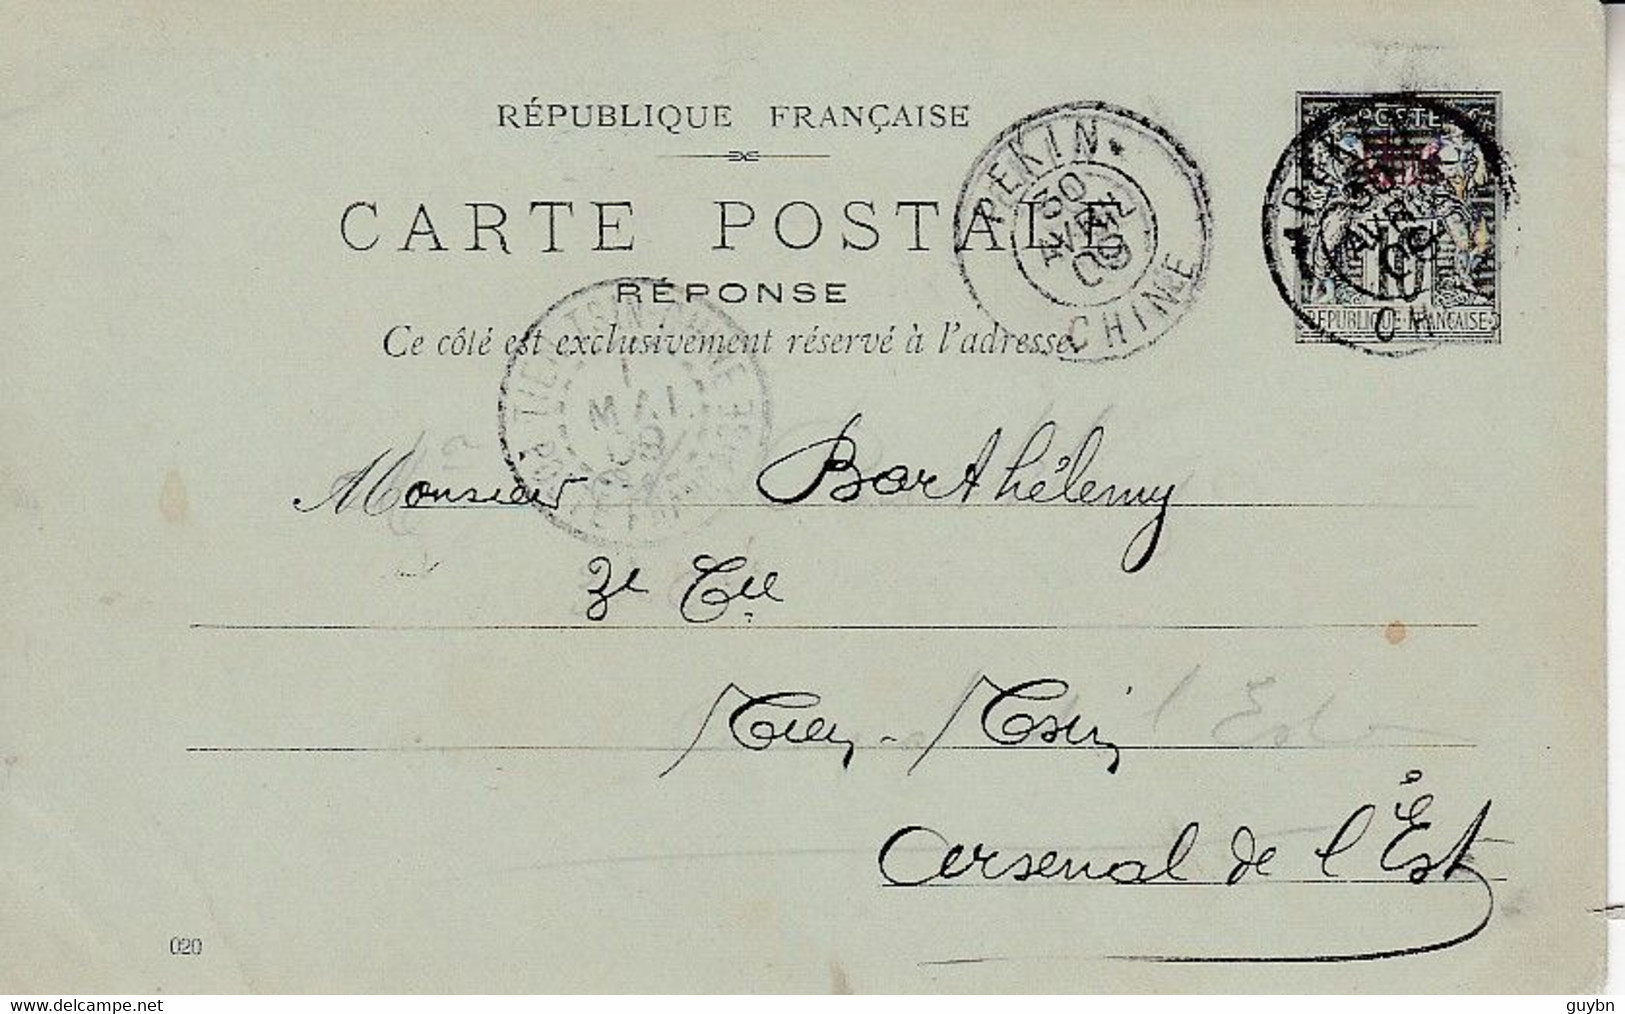 RÉPUBLIQUE FRANÇAISE
CARTE POSTALE
RÉPONSE
Ce côté est exclusivement réservé à l'adresse.
PEKIN *
30
AVRIL
09
CHINE
POSTE
10
RÉPUBLIQUE FRANÇAISE
PEKIN
30
AVRIL
CHINE
1
MAI
09
Monsieur Barthélemy
3e Cie
Tien-Tsin
Arsenal de l'Est
020
www.delcampe.net
guybn